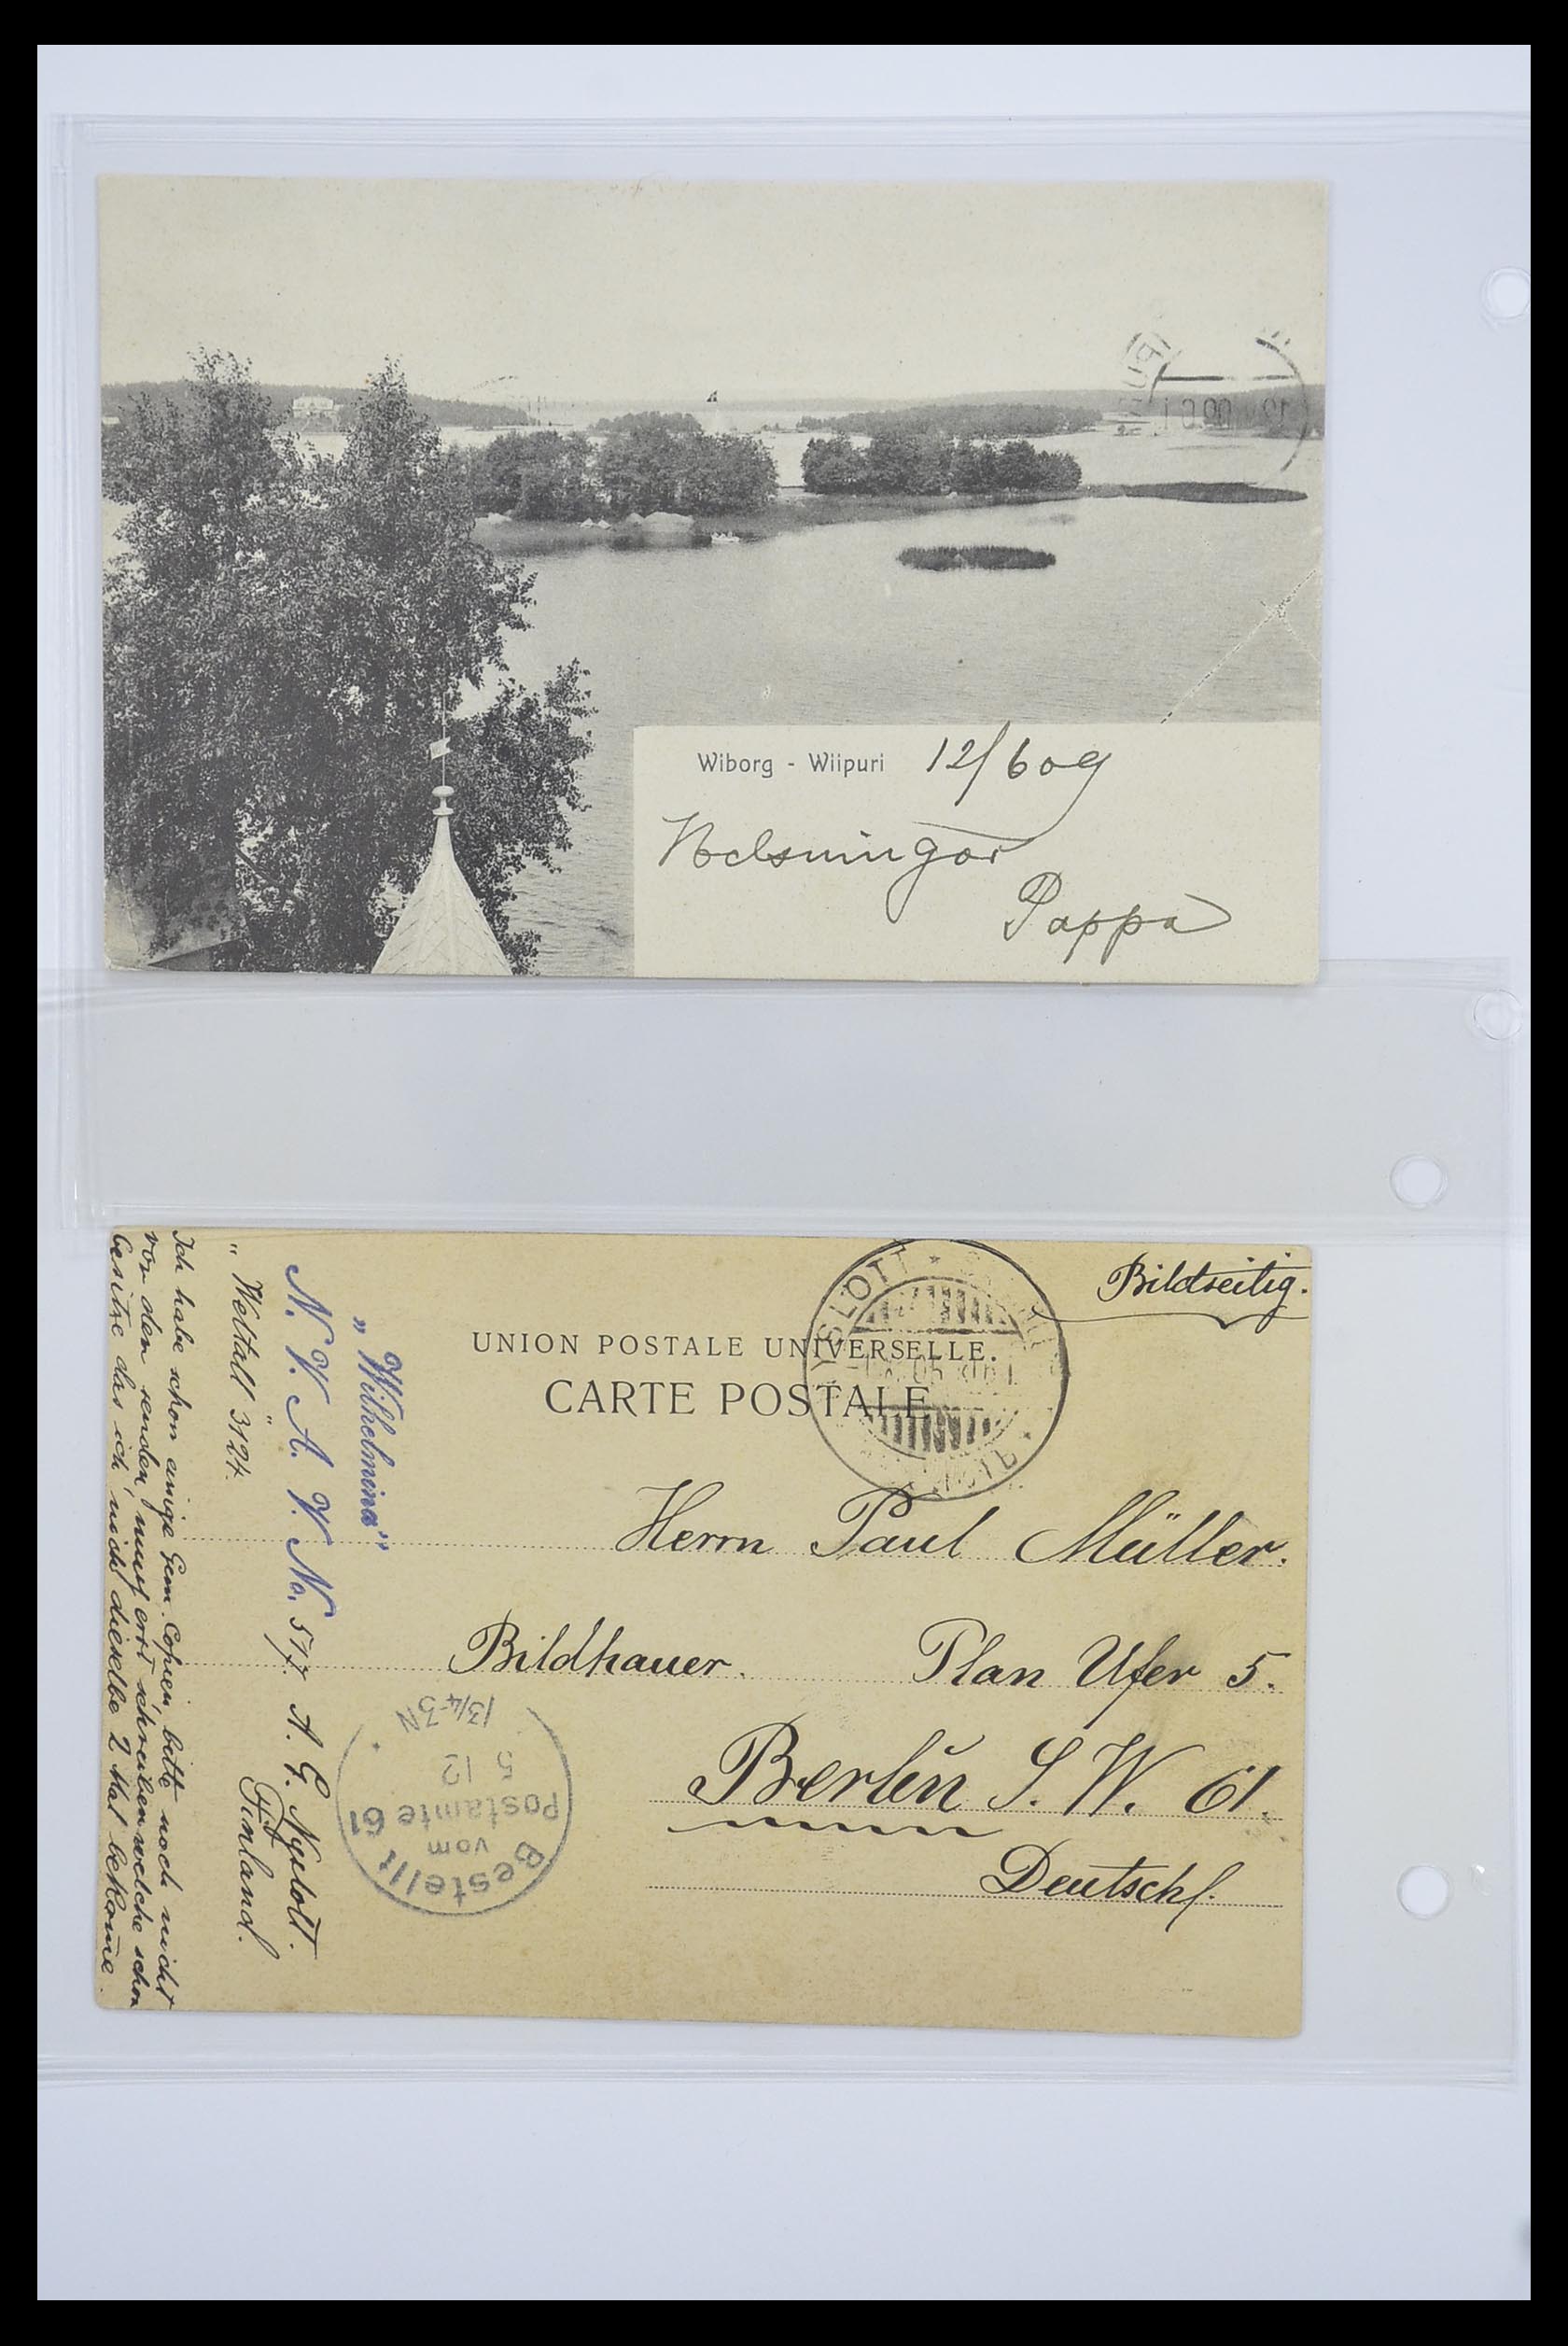 Wiborg - Wiipuri 12/6 09
Helsningar
Pappa
Bildseitig.
UNION POSTALE UNIVERSELLE.
CARTE POSTALE
Herrn Paul Müller.
Bildhauer. Plan Ufer 5.
Berlin S. W. 61.
Deutschl.
„Wilhelmina"
N. V. A. V. No. 577. A. G. Nyslott.
Finland.
"Weltall" 3124.
Ich habe schon einige Gem. Copien, bitte noch nicht
von den senden, muss erst schreiben welche schon
besitze das ich nicht dieselbe 2 Mal bekome.
Bestellt
vom
Postamte 61
5 12
13/4-3N